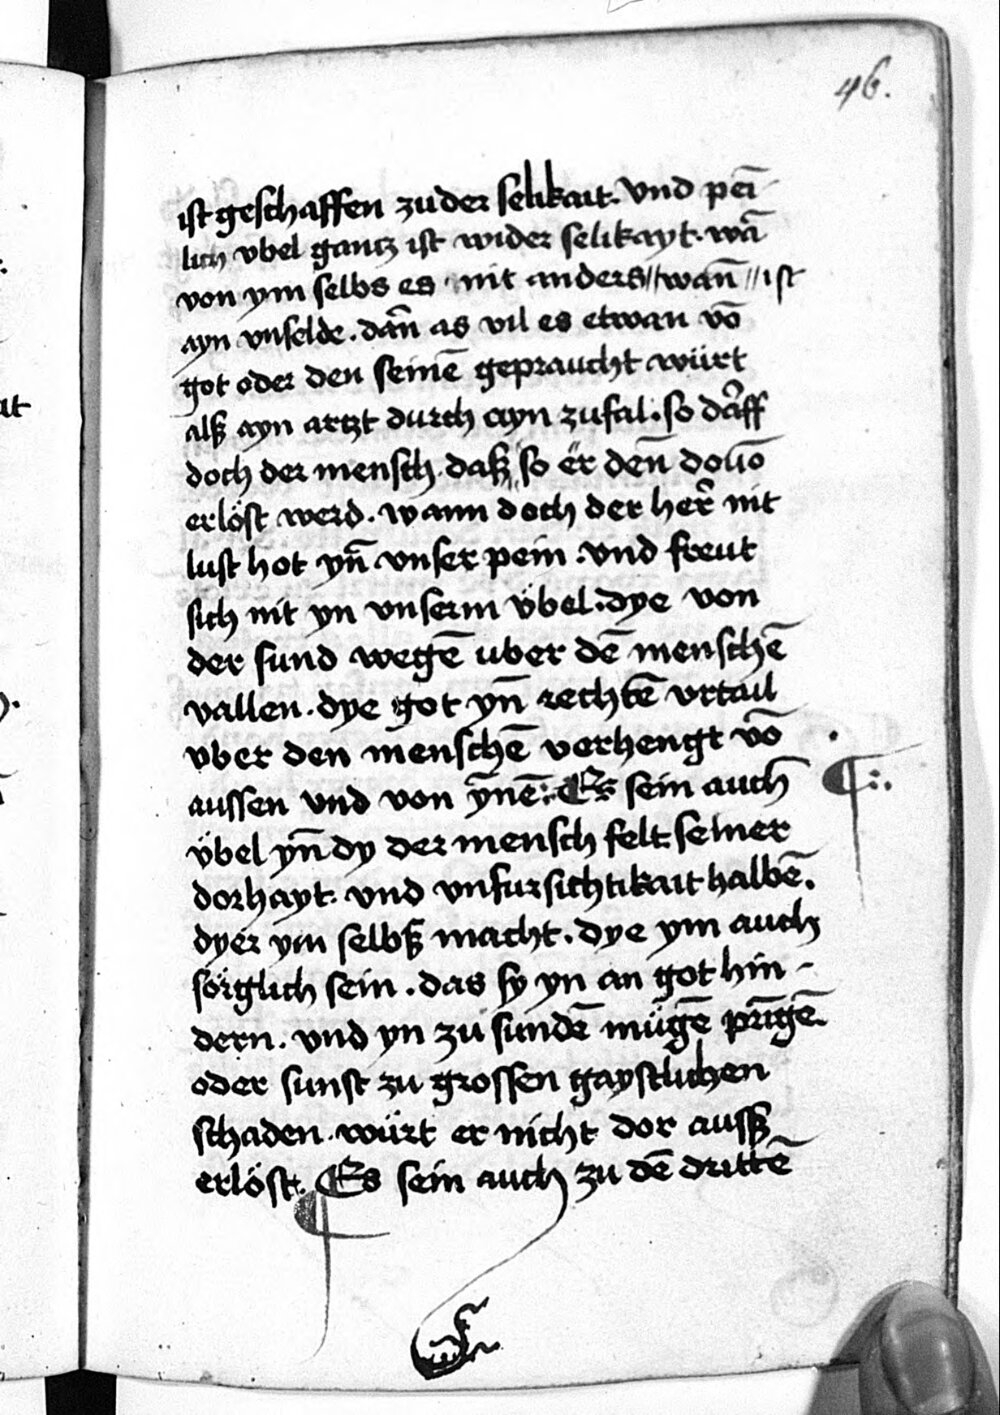 46.
ist geschaffen zuder selikait. Vnd pei-
lich vbel gantz ist wider selikayt. wā
von ym selbs es nit anders // wan̄ // ist
ayn vnselde. dan̄ as vil es etwan vō
got oder den seinē gepraucht würt
alß ayn artzt durch ayn zufal. so darff
doch der mensch. daß so er den̄
erlöst werd. wann doch der her nit
lust hot yn̄ vnser pein. vnd freut
sich nit yn vnserm vbel. dye von
der sund wegē uber dē menschē
vallen. dye got yn̄ rechtē vrtail
vber den menschē verhengt vō
aussen vnd von ynē: Es sein auch
vbel yn̄ dy der mensch felt seiner
dorhayt. vnd vnfursichtikait halbē.
dyer ym selbß macht. dye ym auch
sörglich sein. das sy yn an got hin-
dern. vnd yn zu sundē mügē prīgē.
oder sunst zu grossen gaystlichen
schaden. würt er nicht dor ausß
erlöst. Es sein auch zu dē drittē